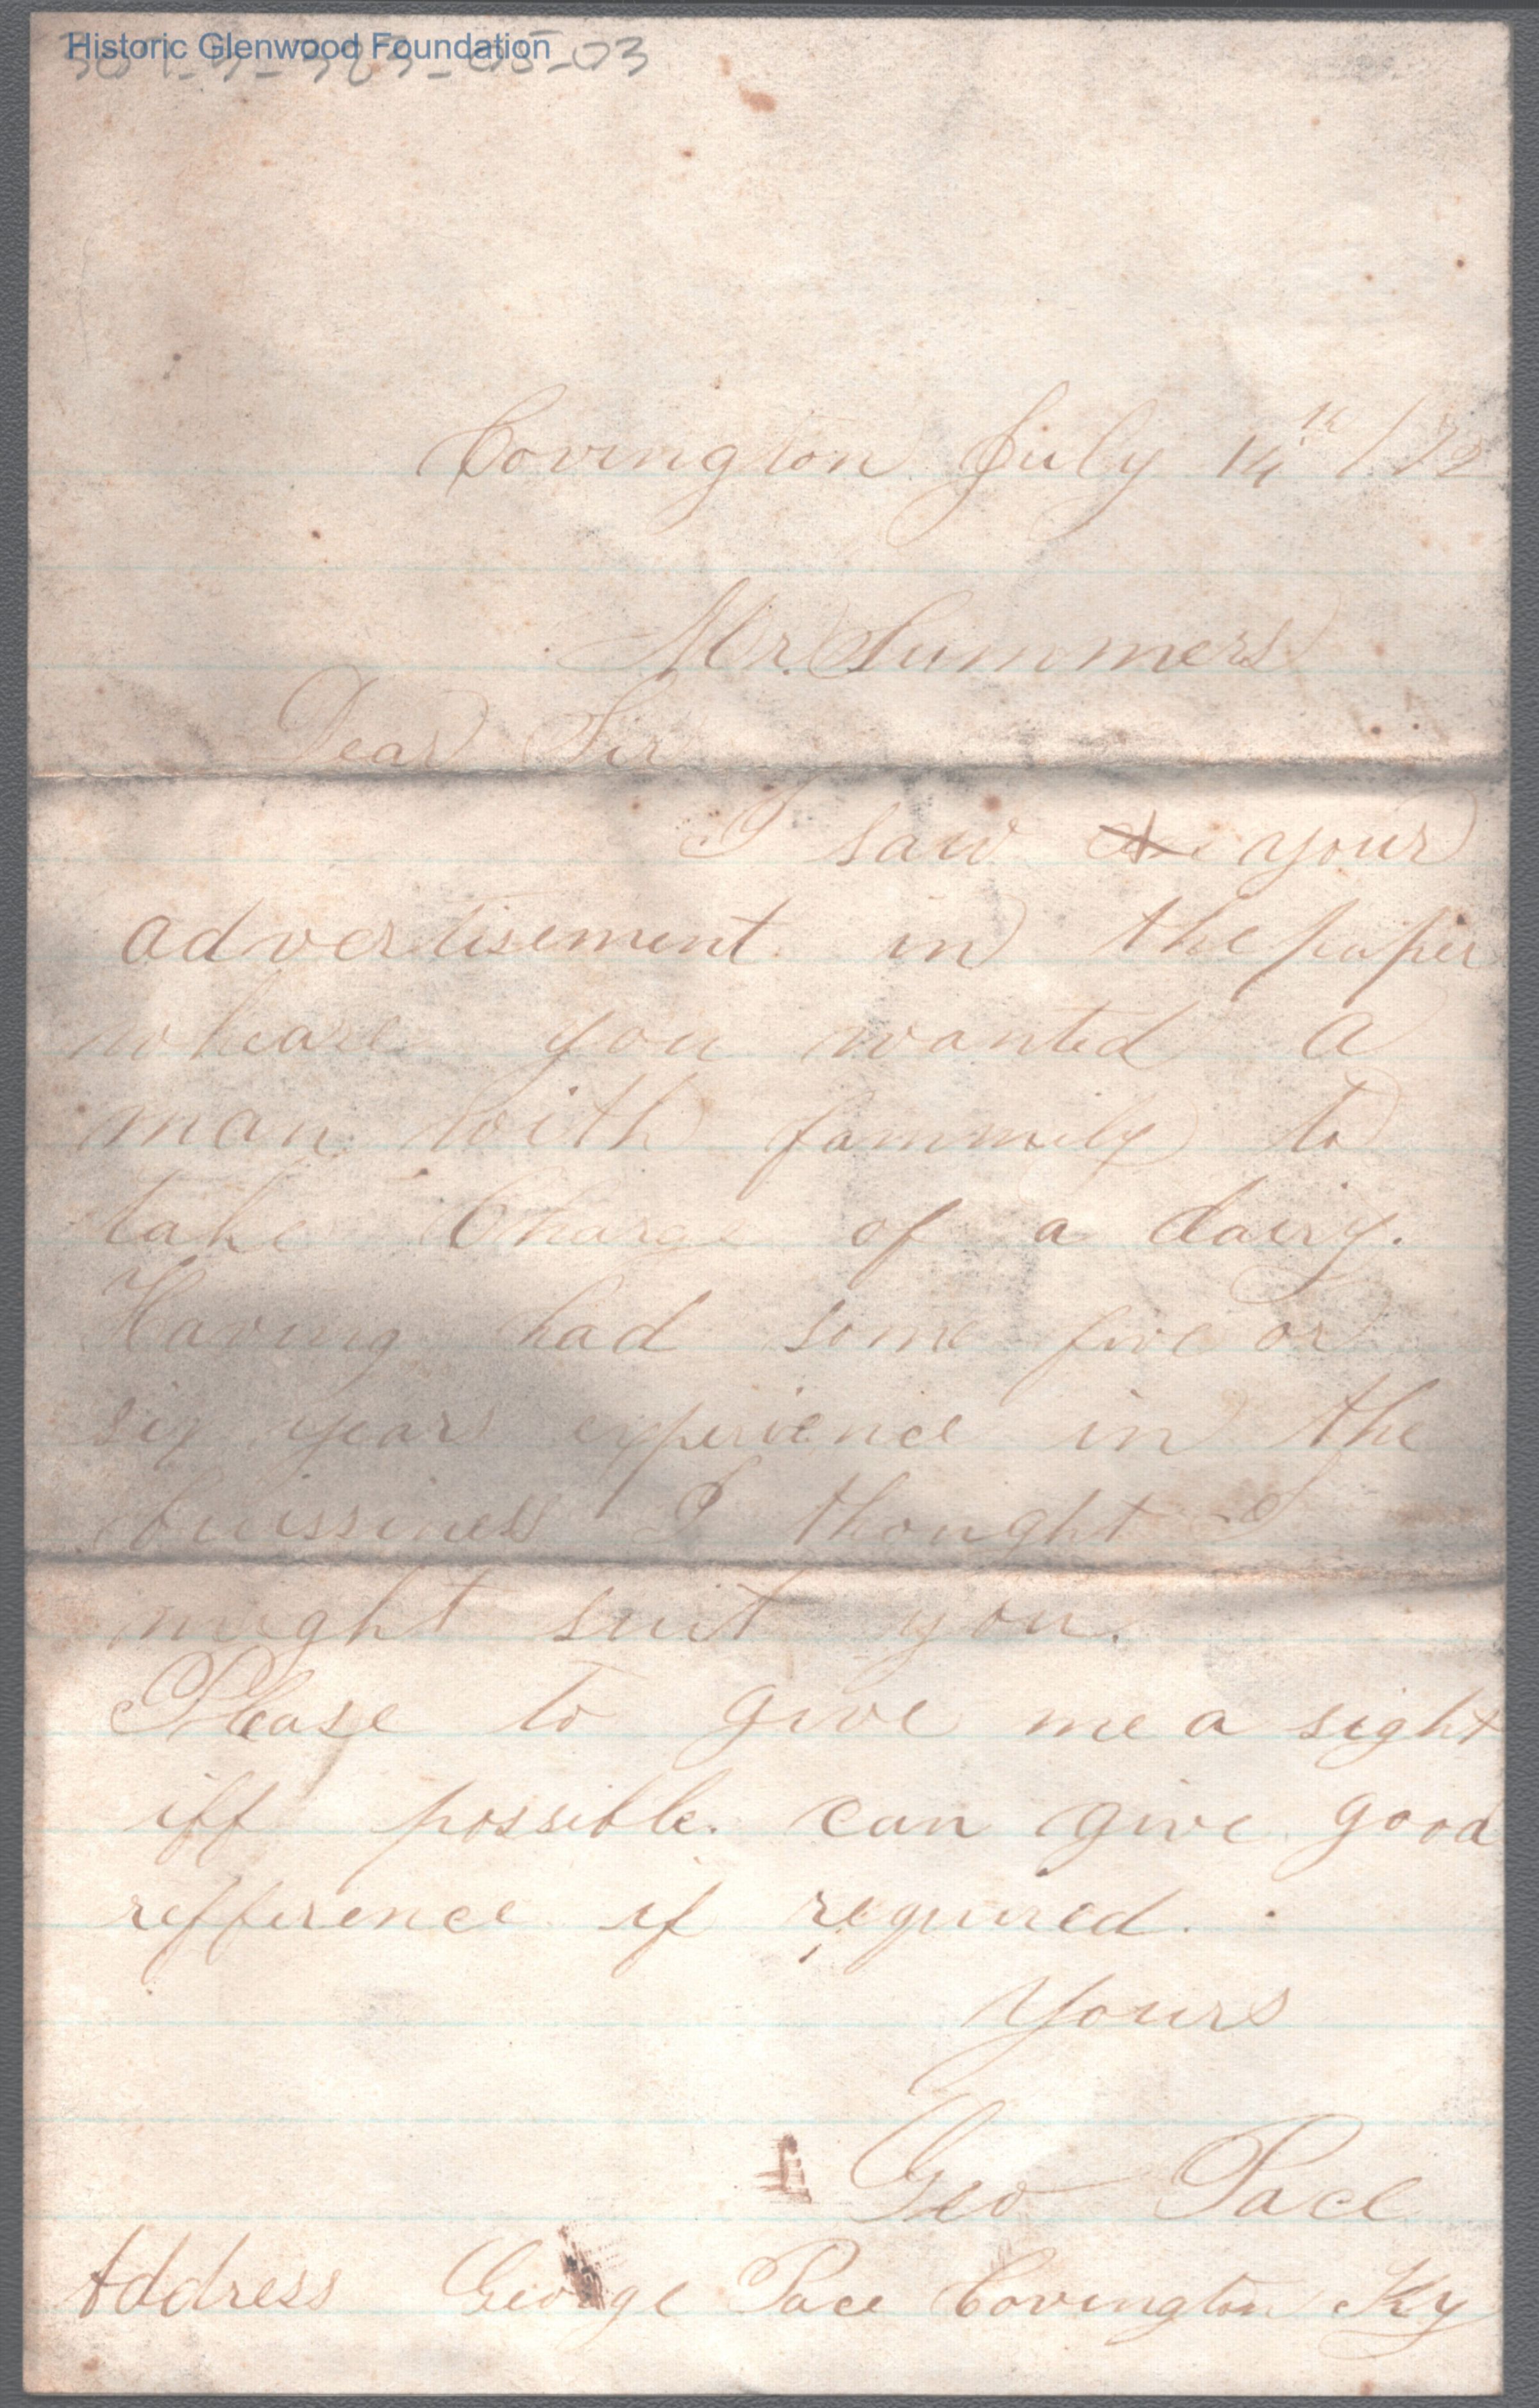 Historic Glenwood Foundation
Covington July 14th /72
Mr. Summers
Dear Sir
I saw your
advertisement in the paper
wheare you wanted a
man with fammily to
take Charge of a dairy.
Having had some five or
six years experience in the
buissiness I thought I
might suit you.
Please to give me a sight
iff possible. can give good
refference if required.
Yours
Geo Pace
Address George Pace Covington Ky